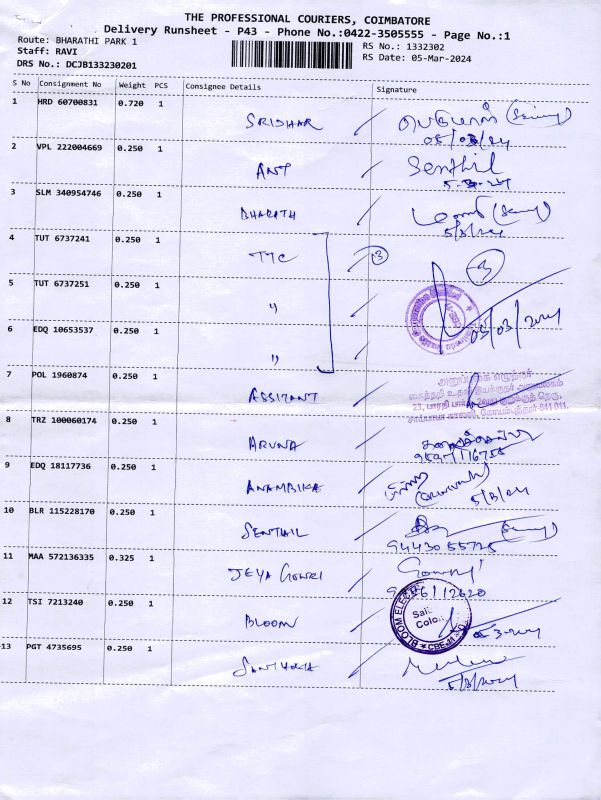 THE PROFESSIONAL COURIERS, COIMBATORE
Delivery Runsheet - P43 - Phone No.:0422-3505555 - Page No.:1
Route: BHARATHI PARK 1
RS No.: 1332302
Staff: RAVI
RS Date: 05-Mar-2024
DRS No.: DCJB133230201
S No Consignment No Weight PCS Consignee Details Signature
1 HRD 60700831 0.720 1 SRIDHAR
05/03/24
2 VPL 222004669 0.250 1 ANT Senthil
5-3-24
3 SLM 340954746 0.250 1 BHARATH
5/3/24
4 TUT 6737241 0.250 1 TTC 3 3
5 TUT 6737251 0.250 1 "
05/03/2024
6 EDQ 10653537 0.250 1 "
7 POL 1960874 0.250 1 ASSITANT
23, பாரதி பார்க்
சாய்பாபா காலனி, கோயம்புத்தூர்-641 011.
8 TRZ 100060174 0.250 1 ARUNA
9 EDQ 18117736 0.250 1 ANAMBIKA
5/3/24
10 BLR 115228170 0.250 1 SENTHIL
9443055725
11 MAA 572136335 0.325 1 JEYA GOWRI Gowri
12 TSI 7213240 0.250 1 BLOOM
BLOOM ELECT
Sai
Colo
13 PGT 4735695 0.250 1
5/3/2024